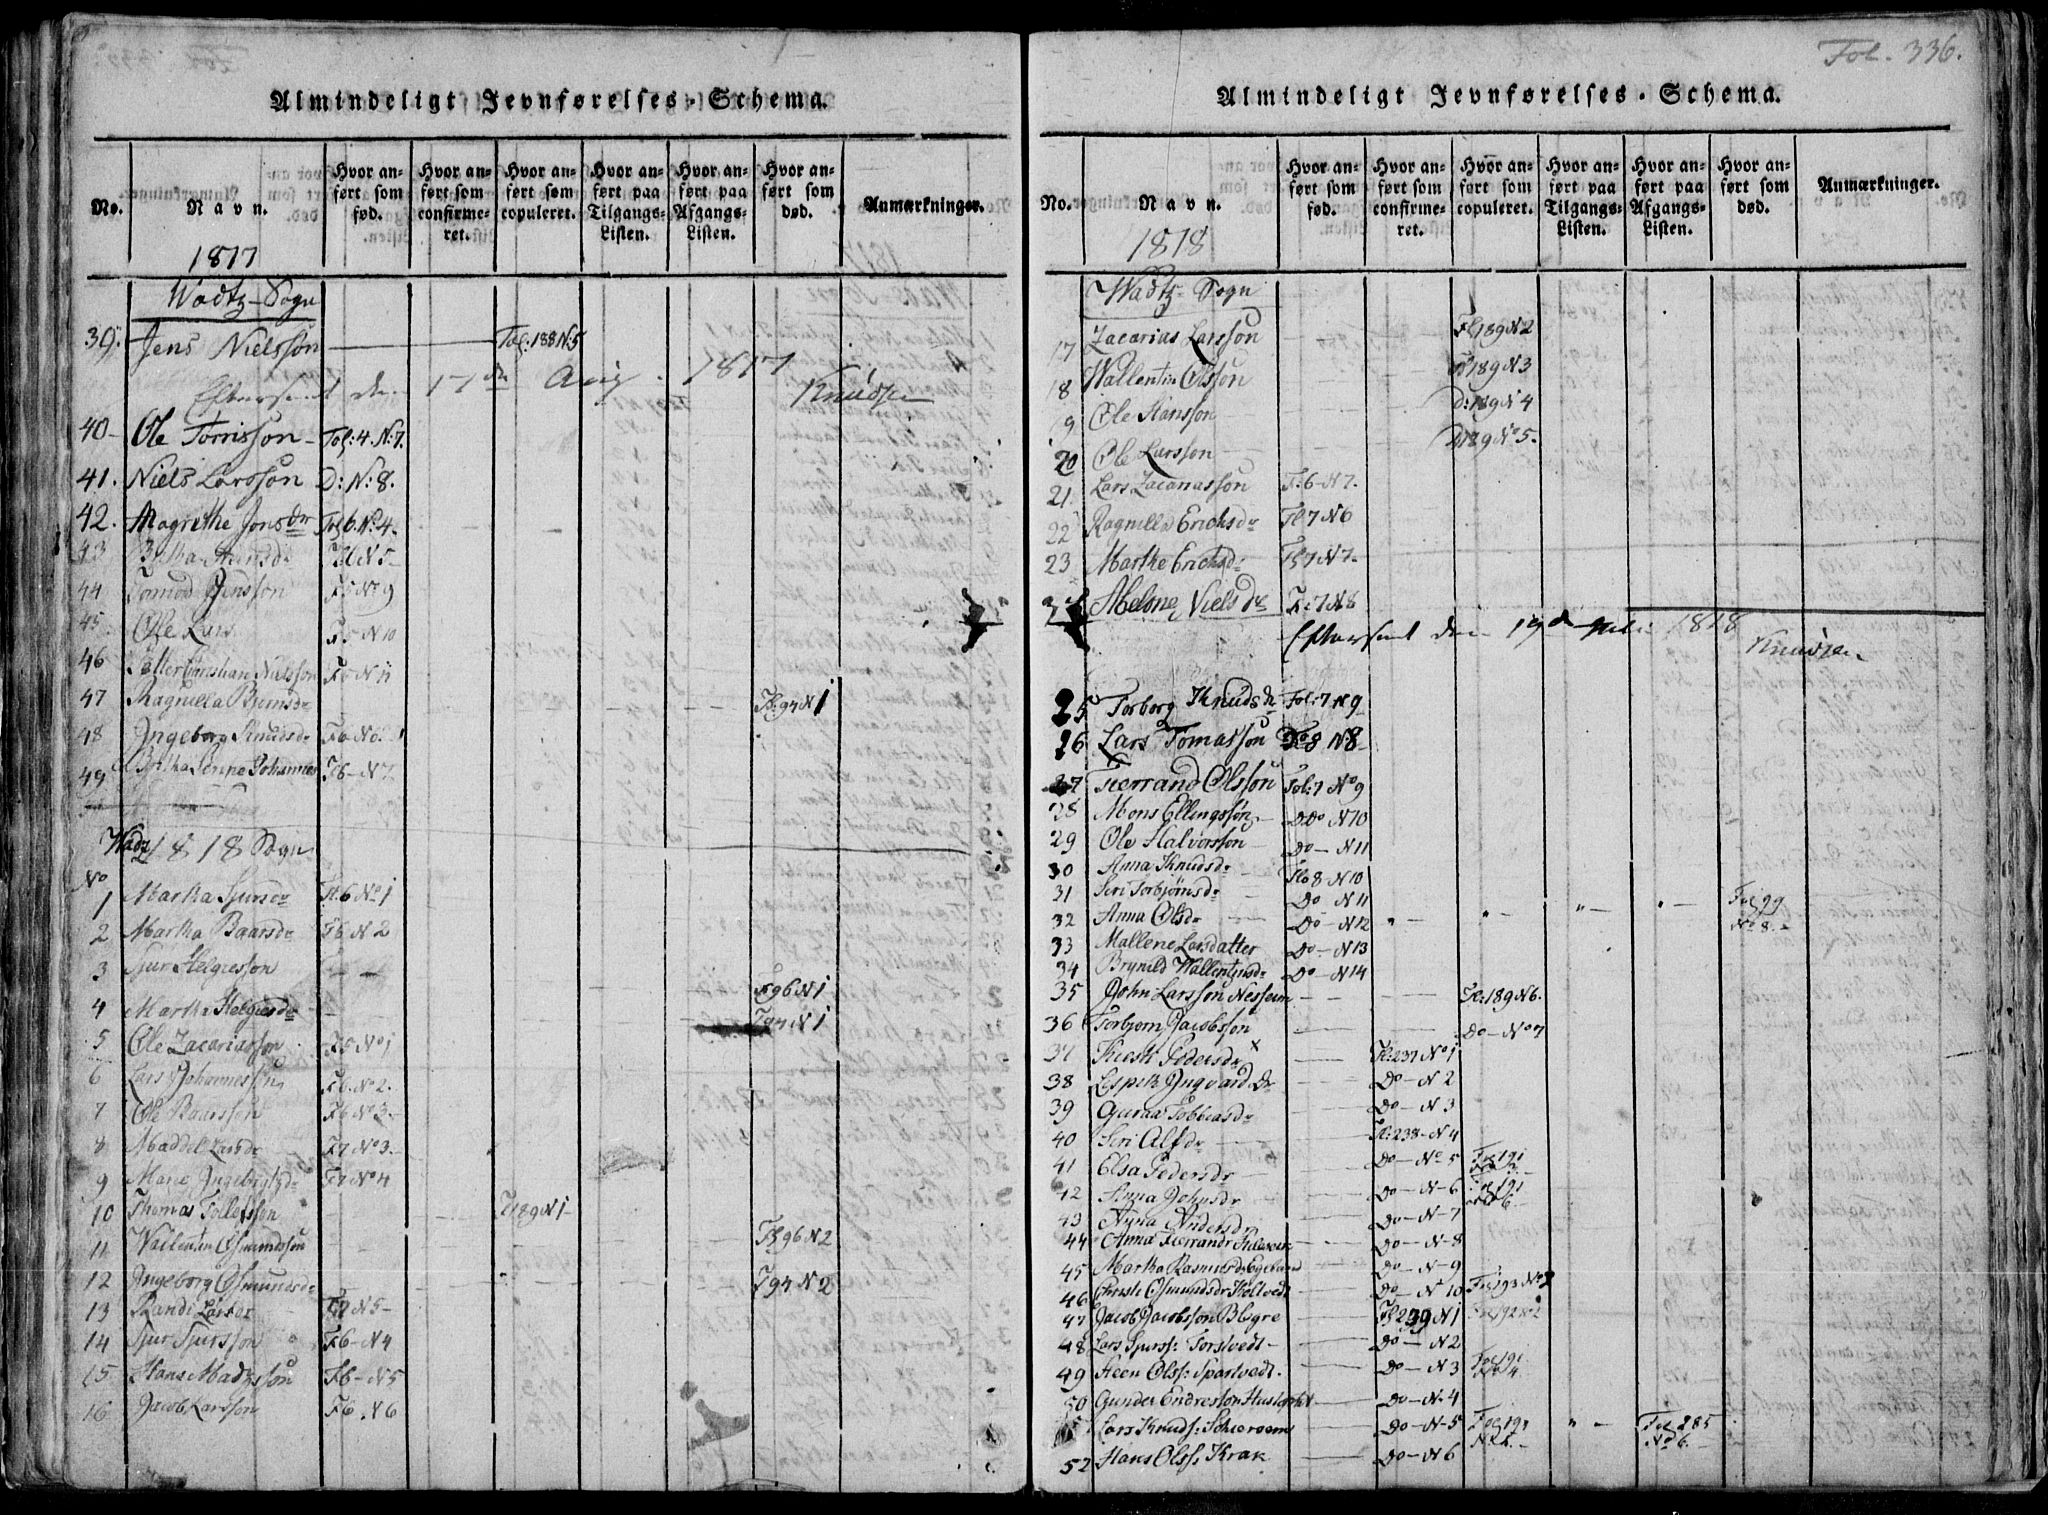 Almindeligt Jevnførelses-Schema.
No. Navn. Hvor anført som fød. Hvor anført som confirmeret. Hvor anført som copuleret. Hvor anført paa Tilgangs-Listen. Hvor anført paa Afgangs-Listen. Hvor anført som død. Anmærkninger.
1817
Wadtz-Sogn
39. Jens Nielsson Fol: 188 N: 5
Eftersent den 17de Aug. 1817 Knudsen
40 Ole Torrisson Fol: 4. N: 7.
41. Niels Larsson D: N: 8.
42. Magrethe Jonsdr Fol 6 N: 4
43 N 5
44 Jensson N 9
45 Ole Lars N 10
46 Petter Christian Nielsson N 11
47 Ragnilla Bjørnsdr F: 94 N 1
48 Ingeborg Knudsdr
49 Johannes F6 N 7
Wadtz 1818 Sogn
No
1 Martha Sjursdr Fl. 6 No 1
2 Martha Baarsdr F6 N 2
3 Sjur Helgesson F96 N 1
4 Martha Helgesdr F94 N 1
5 Ole Zacariasson F5 No 1
6 Lars Johannesson F6. No 2.
7 Ole Baarsson F6 N 3
8 Maddel Larsdr F7 No 3.
9 Marie Ingebrigtsdr F7 No 4
10 Thomas Tollefsson F189 N 1
11 Vallentin Osmundsson Fl 96 N 2
12 Ingeborg Osmundsdr F94 N 2
13 Randi Larsdr F7 N 5
14 Sjur Sjursson F6 - N 4
15 Hans Madtzson F6 - N 5
16 Jacob Larsson F6. N 6
Fol. 336.
Almindeligt Jevnførelses-Schema.
No. Navn. Hvor anført som fød. Hvor anført som confirmeret. Hvor anført som copuleret. Hvor anført paa Tilgangs-Listen. Hvor anført paa Afgangs-Listen. Hvor anført som død. Anmærkninger.
1818
Wadtz Sogn
17 Zacarias Larsson Fl 189 N 2
18 Wallentin Olsson Fl 189 N 3
19 Ole Hansson D: 189 N 4
20 Ole Larsson D 189 No 5.
21 Lars Zacariasson F: 6 - N 7.
22 Ragnilla Erichsdr Fl 7 N 6
23 Marthe Erichsd: Fl 7 N 7
Melone Nielsdr F: 7 N 8
Eftersent den 19de 1818
Knudsen
25 Torborg Knudsdr Fol: 7 N 9
26 Lars Tomasson Do 8 N 8
27 Fierrand Olsson Fol: 7 No 9
28 Mons Ellingsson Do N 10
29 Ole Halvorsson Do - N 11
30 Anna Knudsdr Fl: 8 N 10
31 Seri Torbjørnsdr Do N 11
32 Anna Olsdr Do - N 12 " - " - " - " - Fol 99 No 8.
33 Mallene Larsdatter Do - N 13
34 Brynild Wallentinsdr Do - N 14
35 John Larsson Nesheim Fl: 189 N 6.
36 Torbjørn Jacobsson Do - No 7
37 Pedersdr x Fl: 237 No 1
38 Ingvard Dr Do - N 2
39 Guroa Tobbeasdr Do - N 3
40 Seri Alfdr Fl: 238 - N 4
41 Elsa Pedersdr Do - No 5 Fol 191
42 Anna Johnsdr Do - N - 6 Fol 191
43 Andersdr Do - N - 7
44 Anna Fierrandr Do - N - 8
45 Martha Rasmusdr Do - N - 9
46 Christi Osmundsdr Do - N 10 Fol 193 No 2
47 Jacob Jacobsson Bhgre Fl 239 N 1 Fol 192 No 2
48 Lars Sjurss: Torstvedt Do - N 2
49 Steen Olss: Spartvedt. Do - N 3 Fol 191
50 Gunder Endresson Do - N. 4
Lars Knuds: Do - N - 5 Fol 191 " - Fol 285 No 6.
52 Hans Olss: Krak Do - N 6